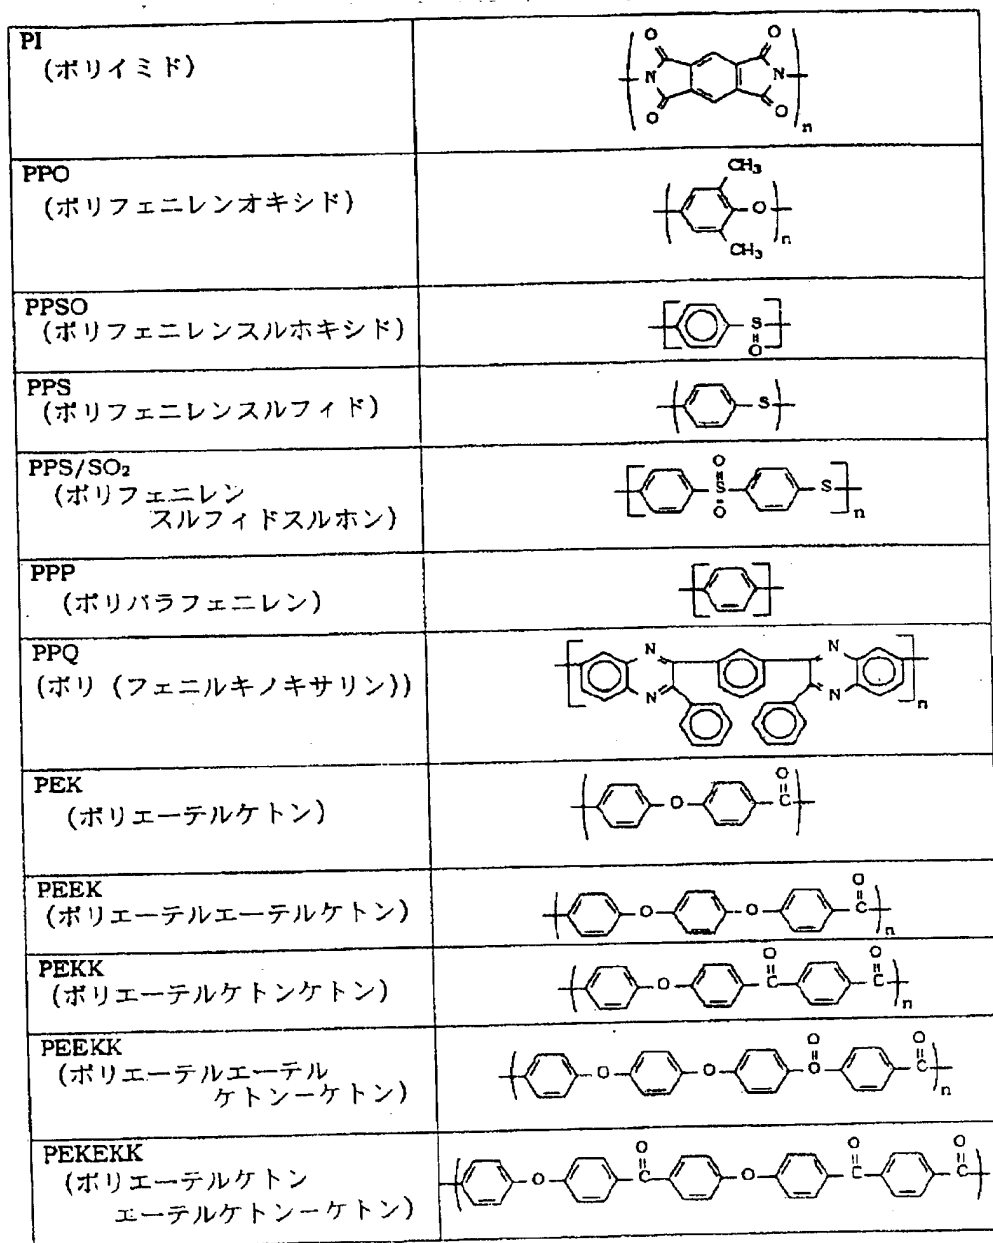 PI
(ポリイミド)
O O
N N
O O
n
PPO
(ポリフェニレンオキシド)
CH₃
O
n
CH₃
PPSO
(ポリフェニレンスルホキシド)
S
O
PPS
(ポリフェニレンスルフィド)
S
PPS/SO₂
(ポリフェニレン
スルフィドスルホン)
O
S S
O
n
PPP
(ポリパラフェニレン)
PPQ
(ポリ (フェニルキノキサリン))
N N
N N
n
PEK
(ポリエーテルケトン)
O
O C
PEEK
(ポリエーテルエーテルケトン)
O
O O C
n
PEKK
(ポリエーテルケトンケトン)
O O
O C C
n
PEEKK
(ポリエーテルエーテル
ケトンーケトン)
O O
O O O C
n
PEKEKK
(ポリエーテルケトン
エーテルケトンーケトン)
O O O
O C O C C